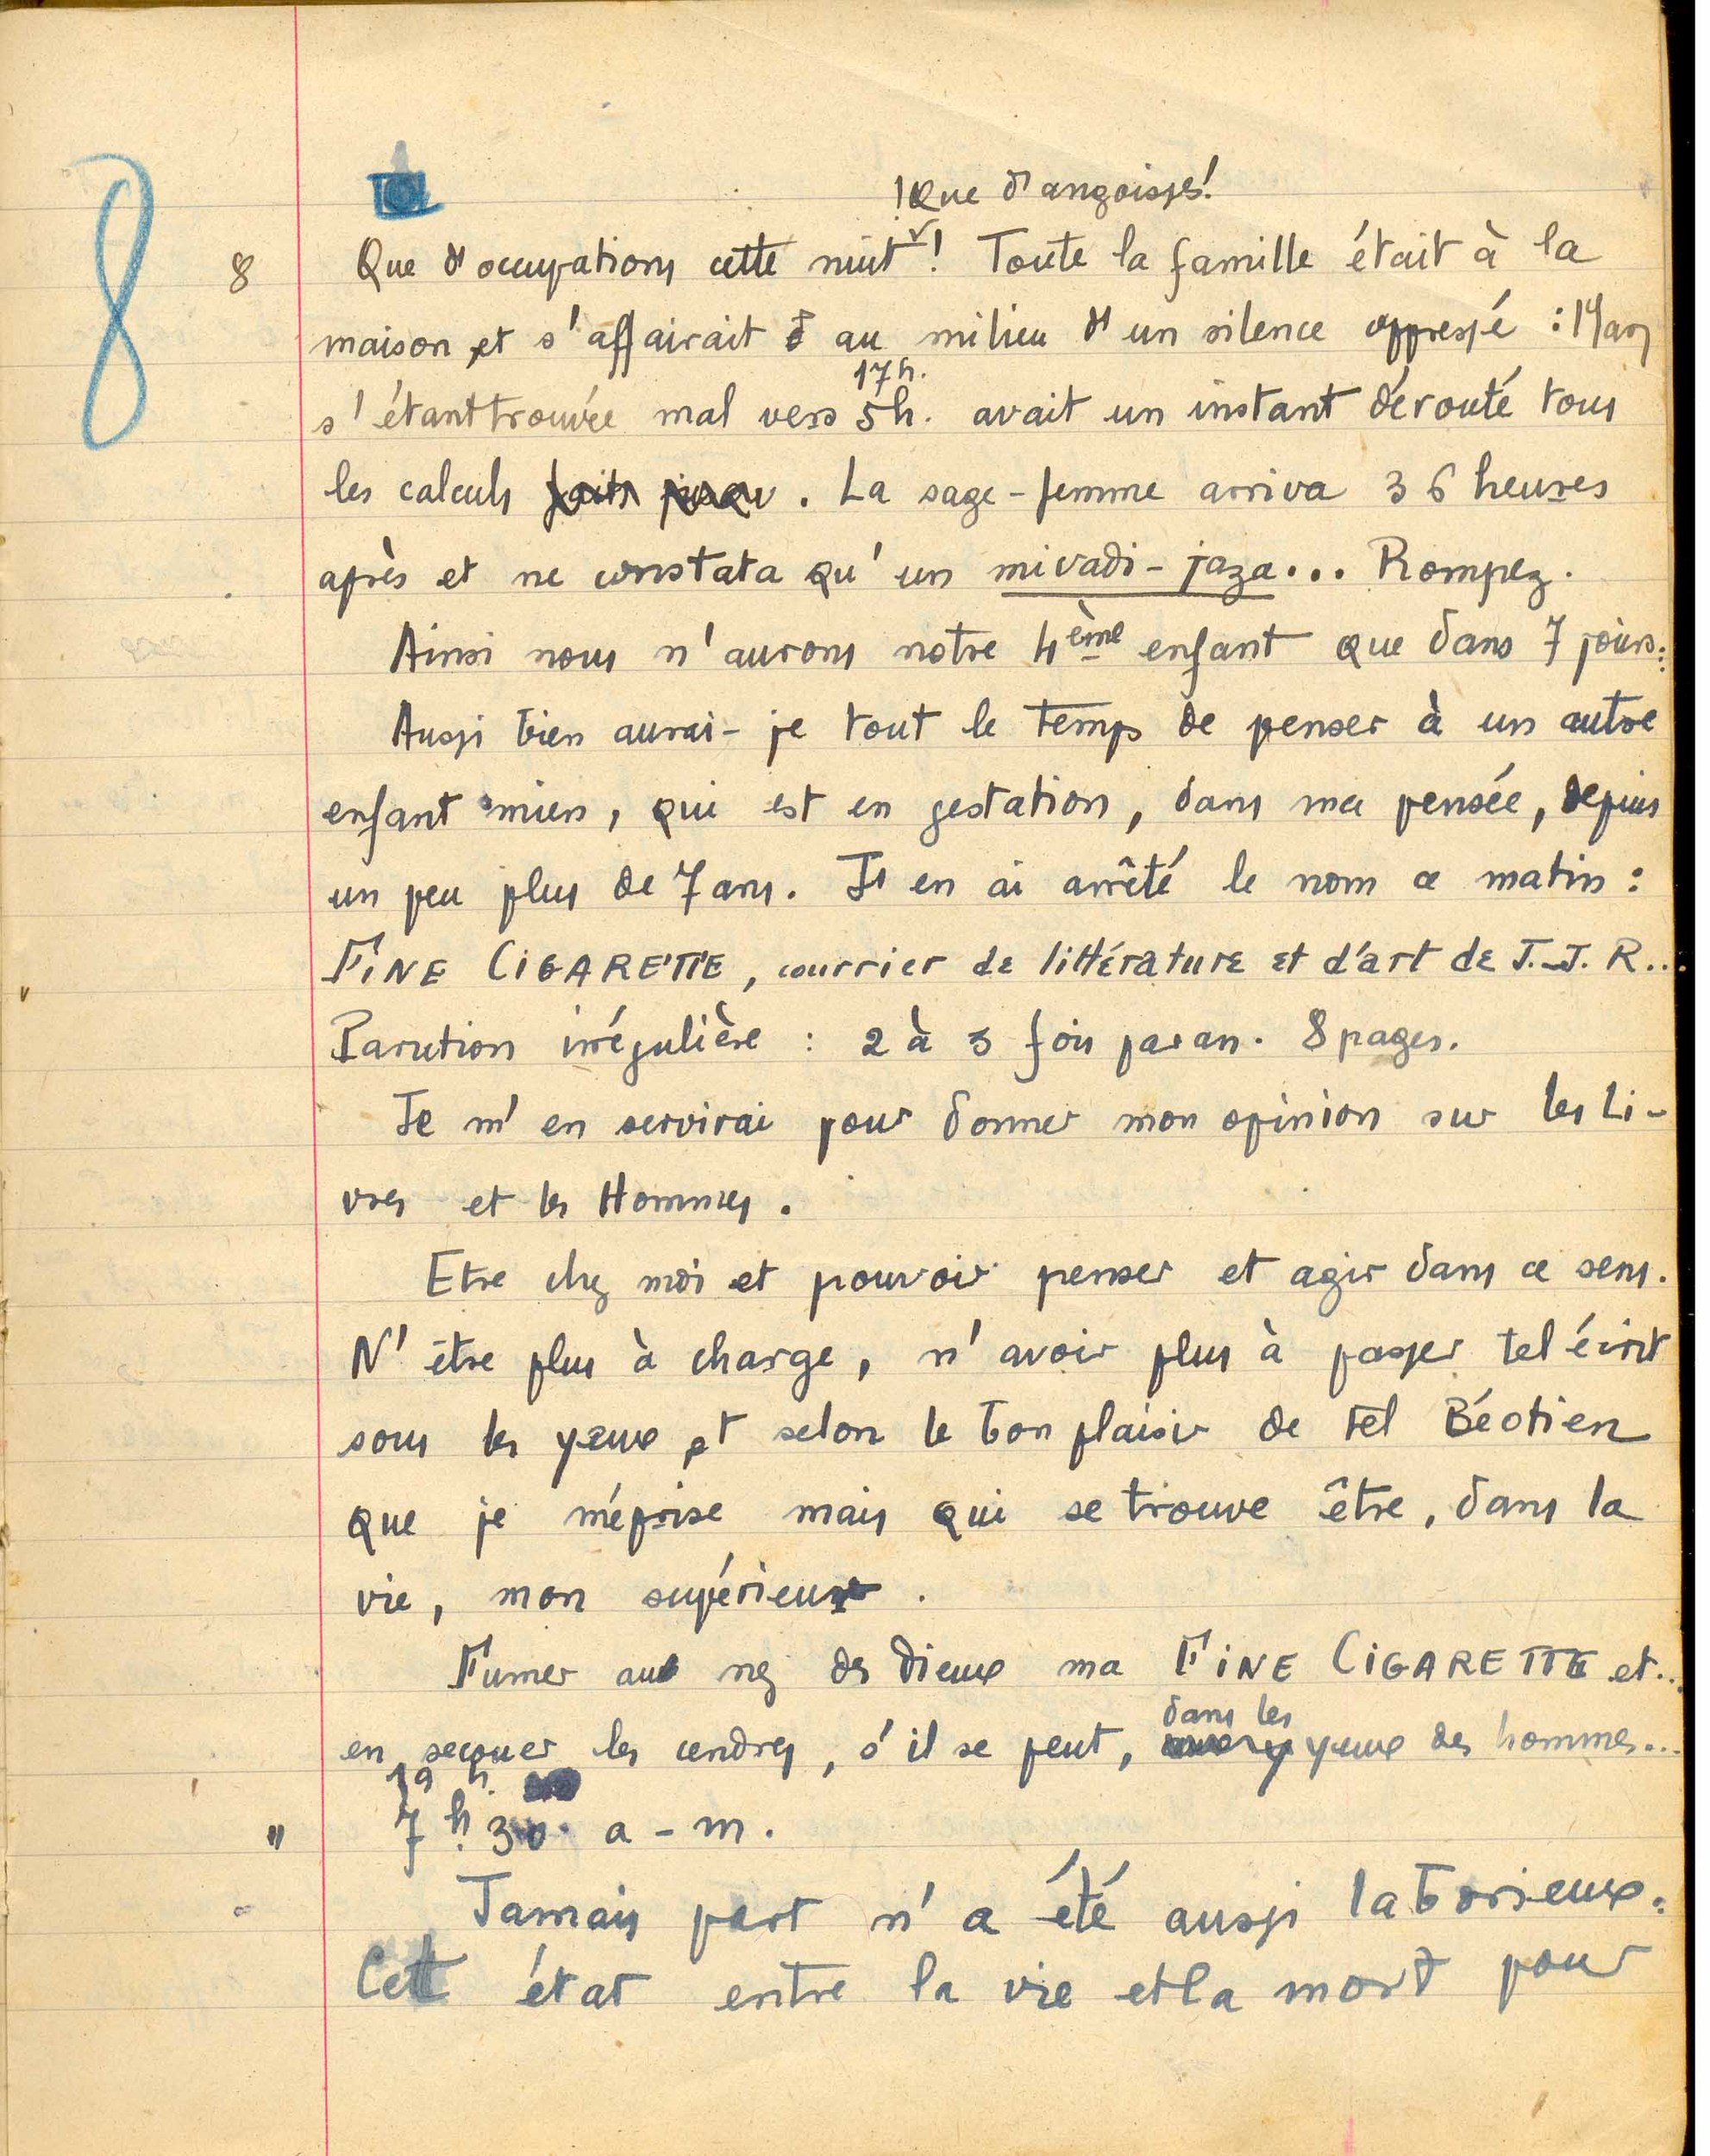 8
!Que d'angoisses!
8 Que d'occupations cette nuit! Toute la famille était à la
maison et s'affairait au milieu d'un silence oppressé : Mary
17h.
s'étant trouvée mal vers 5h. avait un instant dérouté tous
les calculs faits. La sage-femme arriva 36 heures
après et ne constata qu'un mivadi-jaza... Rompez.
Ainsi nous n'aurons notre 4ème enfant que dans 7 jours.
Aussi bien aurai-je tout le temps de penser à un autre
enfant mien, qui est en gestation, dans ma pensée, depuis
un peu plus de 7 ans. J'en ai arrêté le nom ce matin :
FINE CIGARETTE, courrier de littérature et d'art de J.-J. R...
Parution irrégulière : 2 à 3 fois par an. 8 pages.
Je m'en servirai pour donner mon opinion sur les Li-
vres et les Hommes.
Etre chez moi et pouvoir penser et agir dans ce sens.
N'être plus à charge, n'avoir plus à passer tel écrit
sous les yeux et selon le bon plaisir de tel Béotien
que je méprise mais qui se trouve être, dans la
vie, mon supérieur.
Fumer au nez des Dieux ma FINE CIGARETTE et...
dans les
en secouer les cendres, s'il se peut, yeux des hommes...
19 h.
" 7h.30 a-m.
Jamais part n'a été aussi laborieux.
Cet état entre la vie et la mort pour